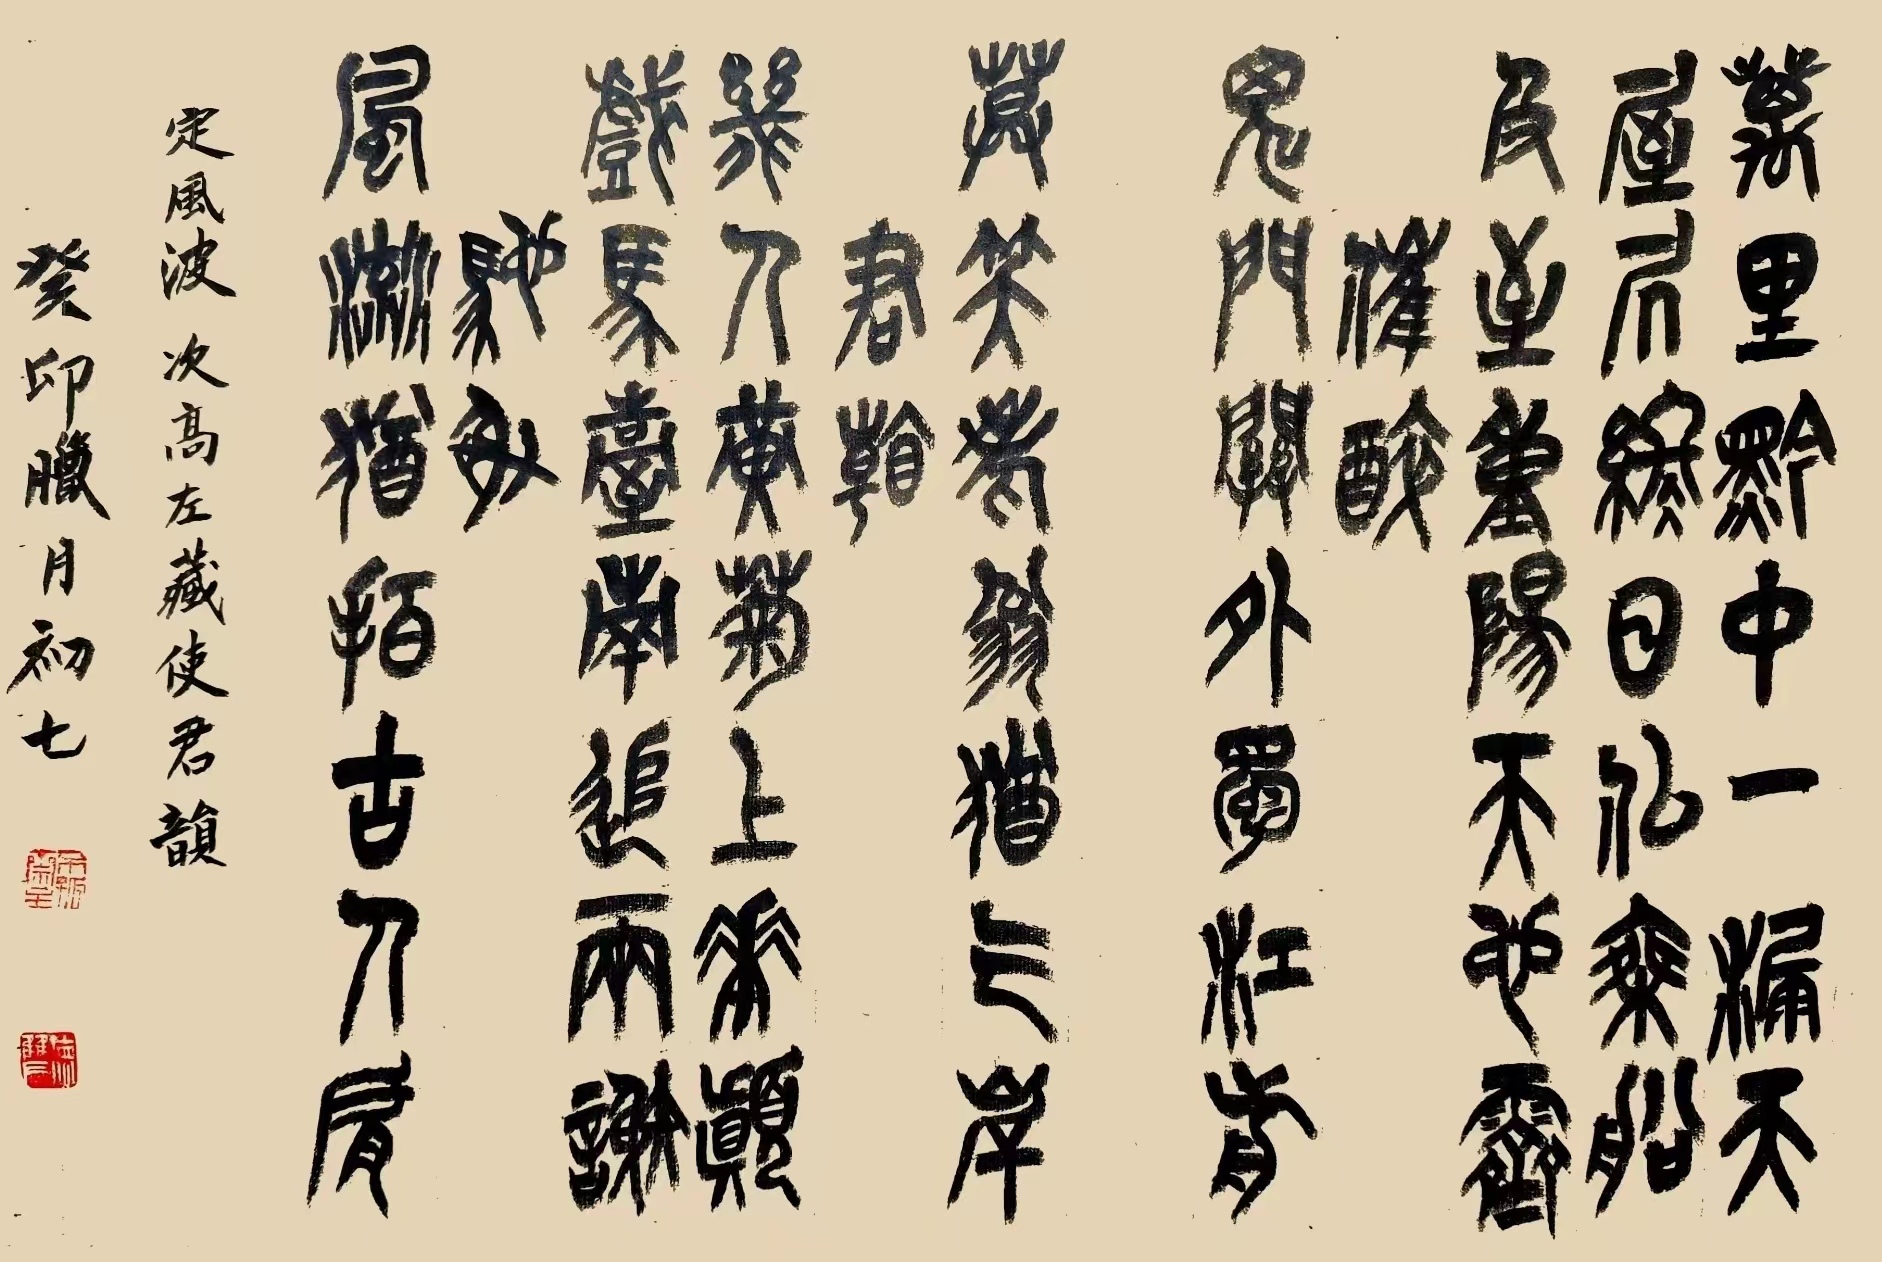 萬里黔中一漏天
屋居終日似乘船
及至重陽天也霽
催醉
鬼門關外蜀江前
莫笑老翁猶气岸
君看
幾人黃菊上華顛
戲馬臺南追兩謝
馳射
風流猶拍古人肩
定風波 次高左藏使君韻
癸卯臘月初七